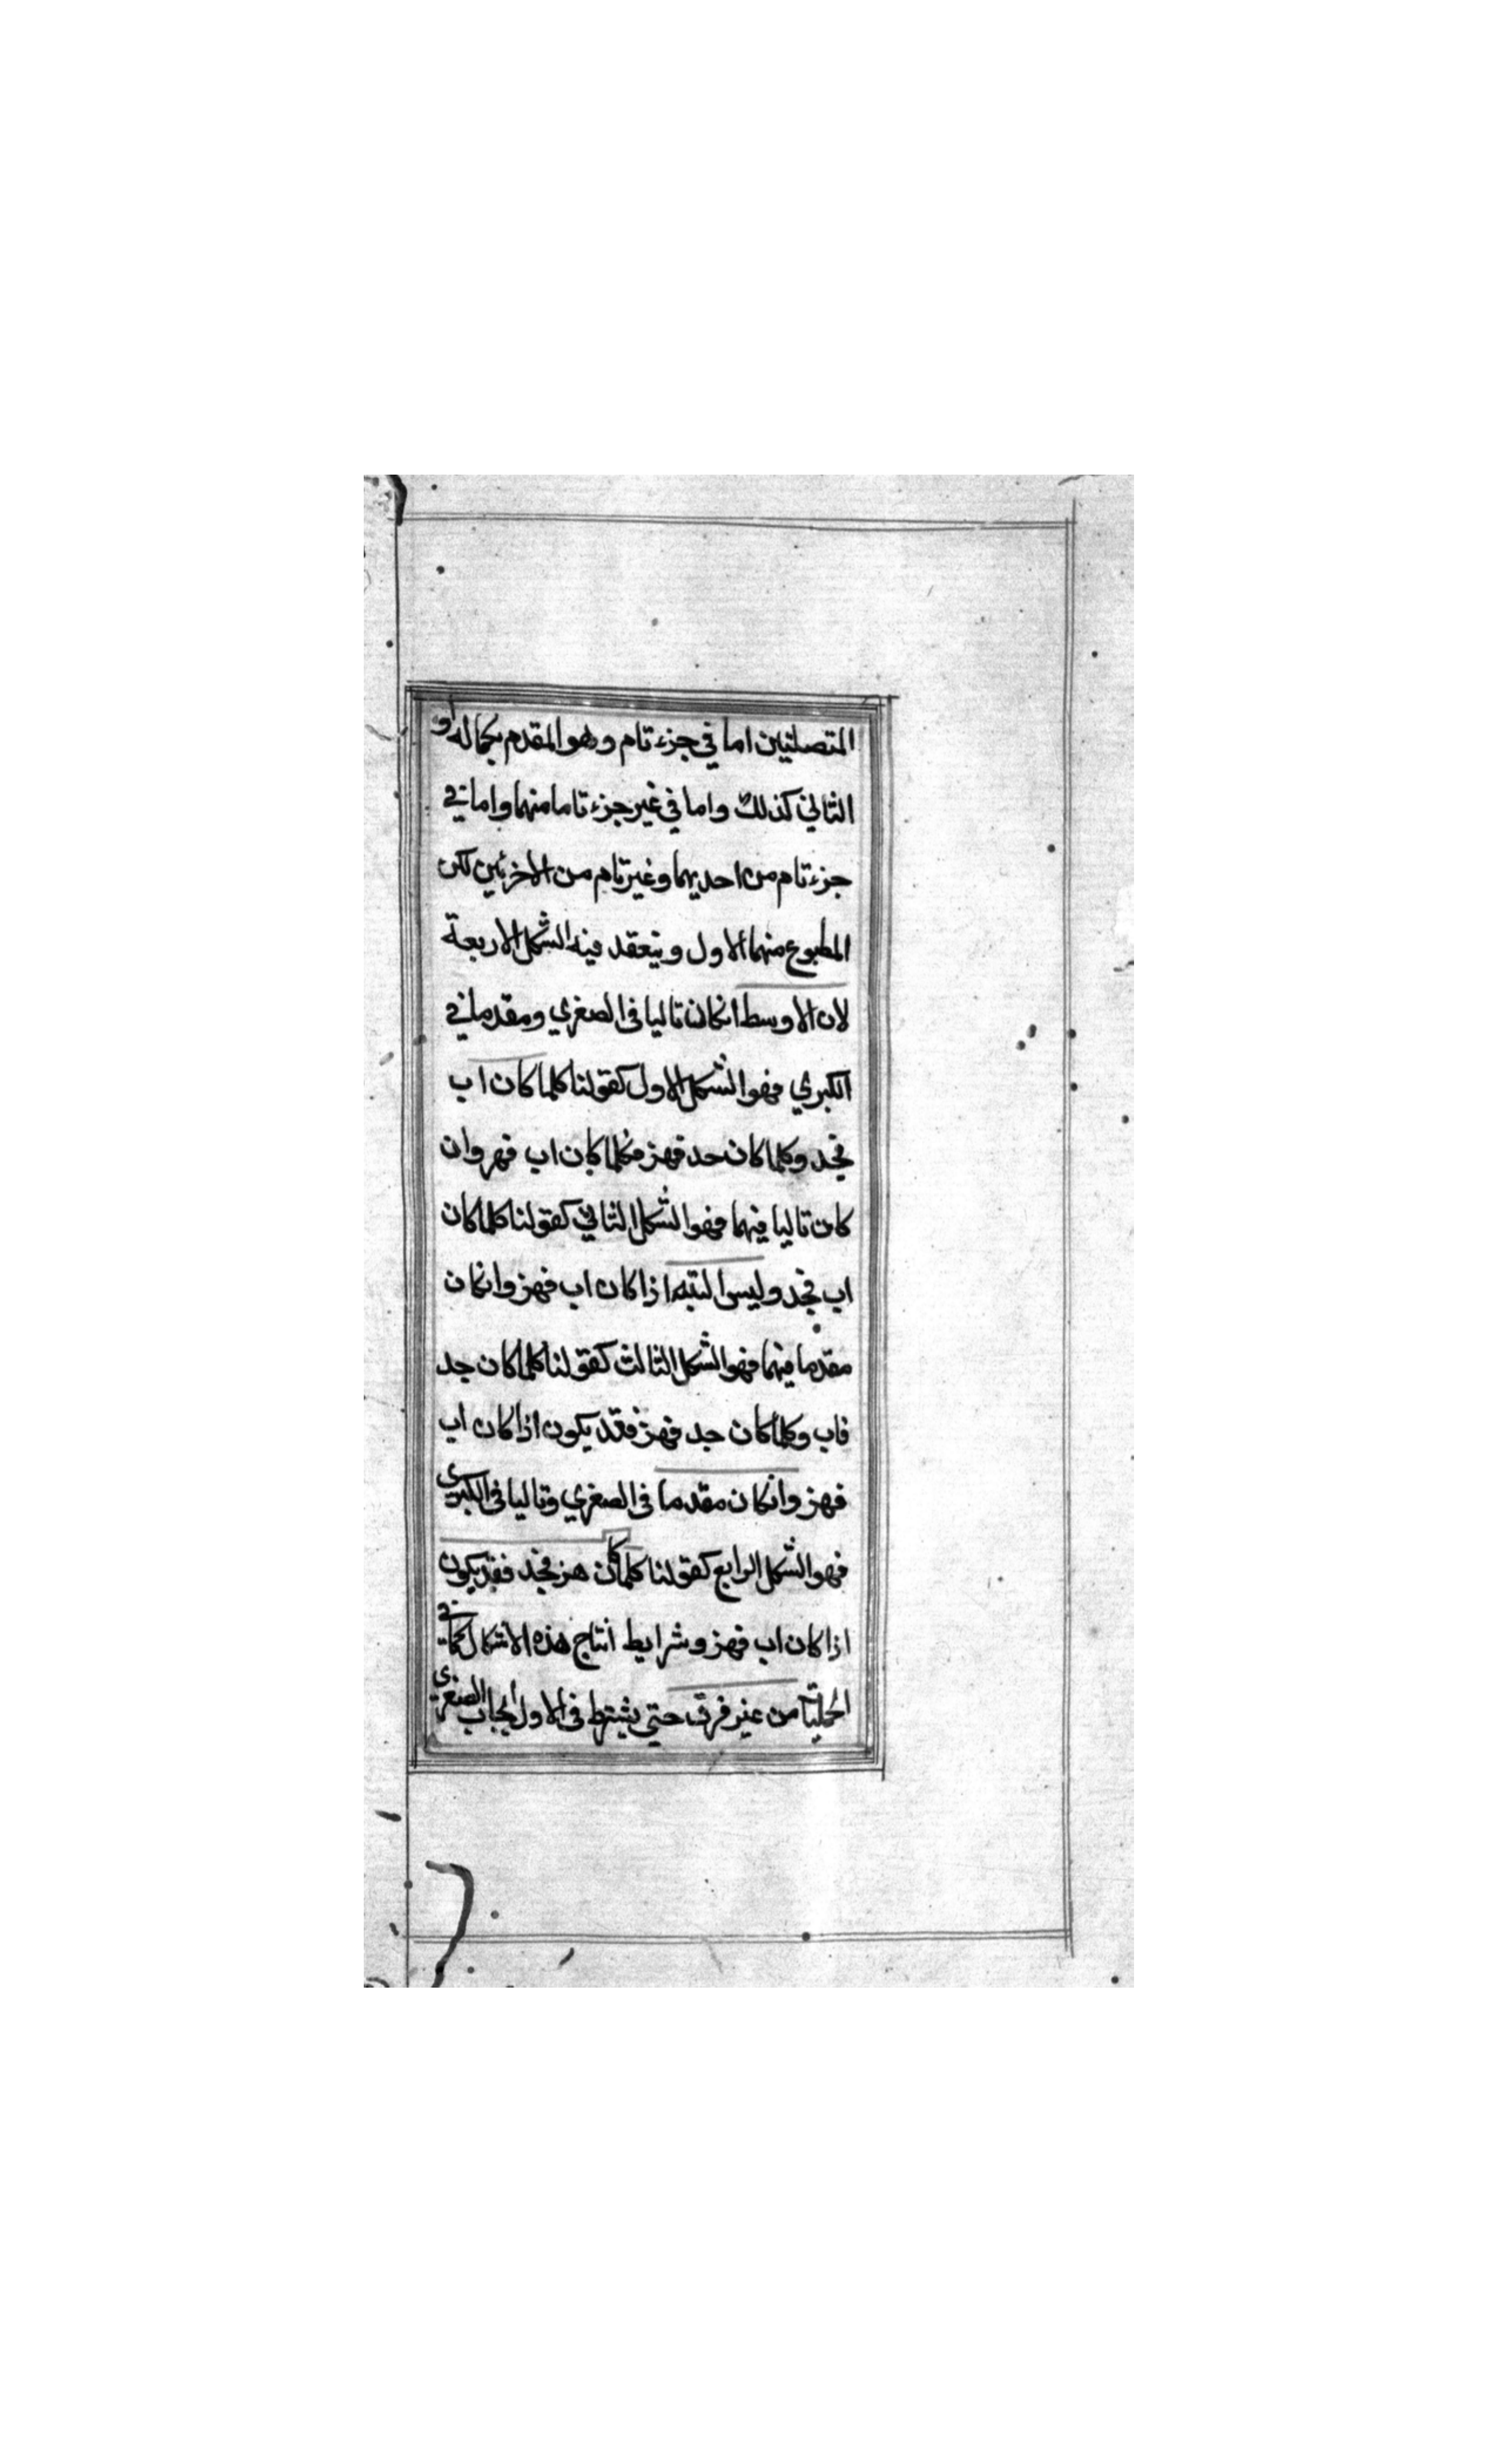 المتصلتين اما في جزء تام وهو المقدم بكماله او
التالي كذلك واما في غير جزء تاما منهما واما في
جزء تام من احديهما وغير تام من الاخر ئين لكن
المطبوع منهما الاول وينعقد فيه الشكل الاربعة
لان الاوسط انكان تاليا في الصغري ومقدما في
الكبري فهو الشكل الاول كقولنا كلما كان اب
فجد وكلما كان حد فهز فكلما كان اب فهر وان
كان تاليا فيهما فهو الشكل الثاني كقولنا كلما كان
اب فجد وليس البته اذا كان اب فهز وانكان
مقدما فيهما فهو الشكل الثالث كقولنا كلما كان جد
فاب وكلما كان جد فهز فقد يكون اذا كان اب
فهز وانكان مقدما في الصغري وتاليا في الكبري
فهو الشكل الرابع كقولنا كلما كان هز فجد فقد يكون
اذا كان اب فهز وشرايط انتاج هذه الاشكال كما في
الحمليات من غير فرق حتي يشترط في الاول ايجاب الصغري